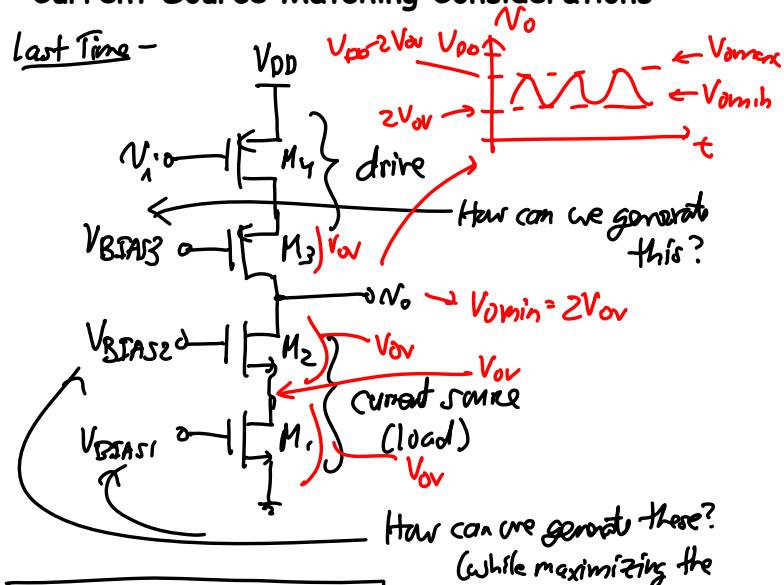 Current Source Matching Considerations
Last Time -
V_DD
V_DD-2V_OV V_DD
N_o
V_omax
V_omin
2V_OV
t
N_i
M_4
drive
How can we generate
this?
V_BIAS3
M_3
V_OV
N_o
V_omin = 2V_OV
V_BIAS2
M_2
V_OV
V_OV
current source
(load)
V_BIAS1
M_1
V_OV
How can we generate these?
(while maximizing the